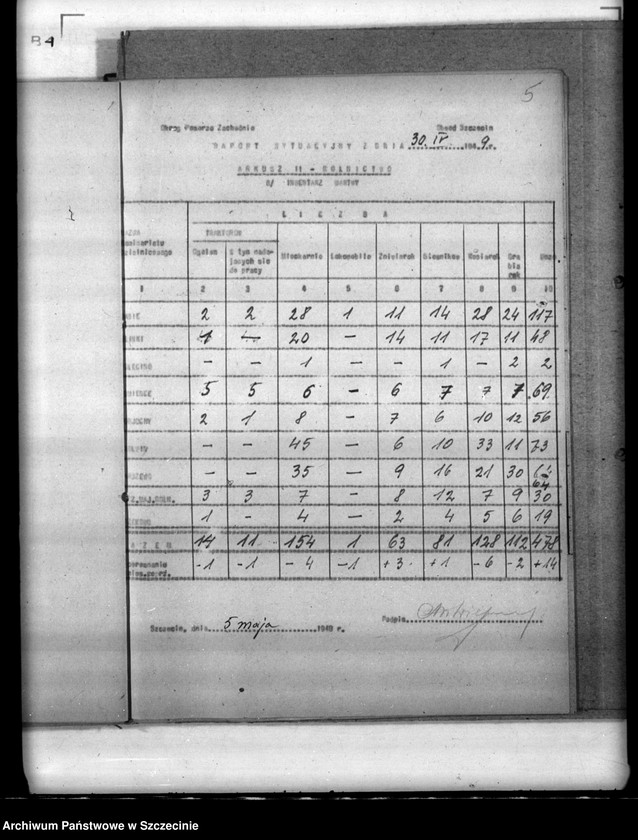 B4
5
Okręg Pomorze Zachodnie Obwód Szczecin
RAPORT SYTUACYJNY Z DNIA 30 IV 1949 r.
ARKUSZ II - ROLNICTWO
B/ INWENTARZ MARTWY
LICZBA
TRAKTORÓW
Ogółem Z tym nadających się do pracy Młockarnie Lokomobile Żniwiarek Siewników Kosiarek Grabiarek
1 2 3 4 5 6 7 8 9 10
2 2 28 1 11 14 28 24 117
1 — 20 — 14 11 17 11 48
— — 1 — — 1 — 2 2
5 5 6 — 6 7 7 7 69
2 1 8 — 7 6 10 12 56
— — 45 — 6 10 33 11 73
— — 35 — 9 16 21 30 64
3 3 7 — 8 12 7 9 30
1 - 4 — 2 4 5 6 19
RAZEM 14 11 154 1 63 81 128 112 478
-1 -1 -4 -1 +3 +1 -6 -2 +14
Szczecin, dnia 5 maja 1949 r. Podpis
Archiwum Państwowe w Szczecinie